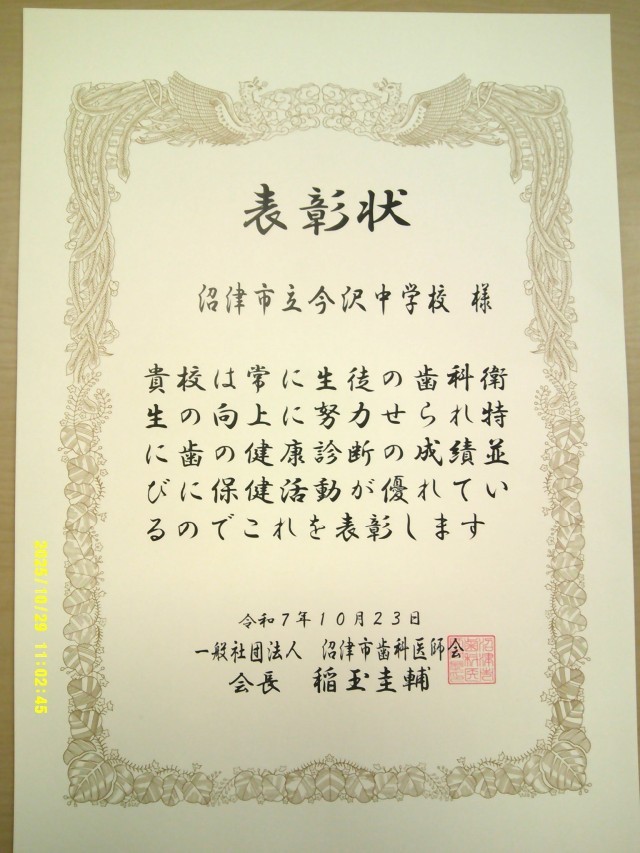 表彰状
沼津市立今沢中学校 様
貴校は常に生徒の歯科衛
生の向上に努力せられ特
に歯の健康診断の成績並
びに保健活動が優れてい
るのでこれを表彰します
令和7年10月23日
一般社団法人 沼津市歯科医師会
会長 稲玉圭輔
2025/10/29 11:02:45